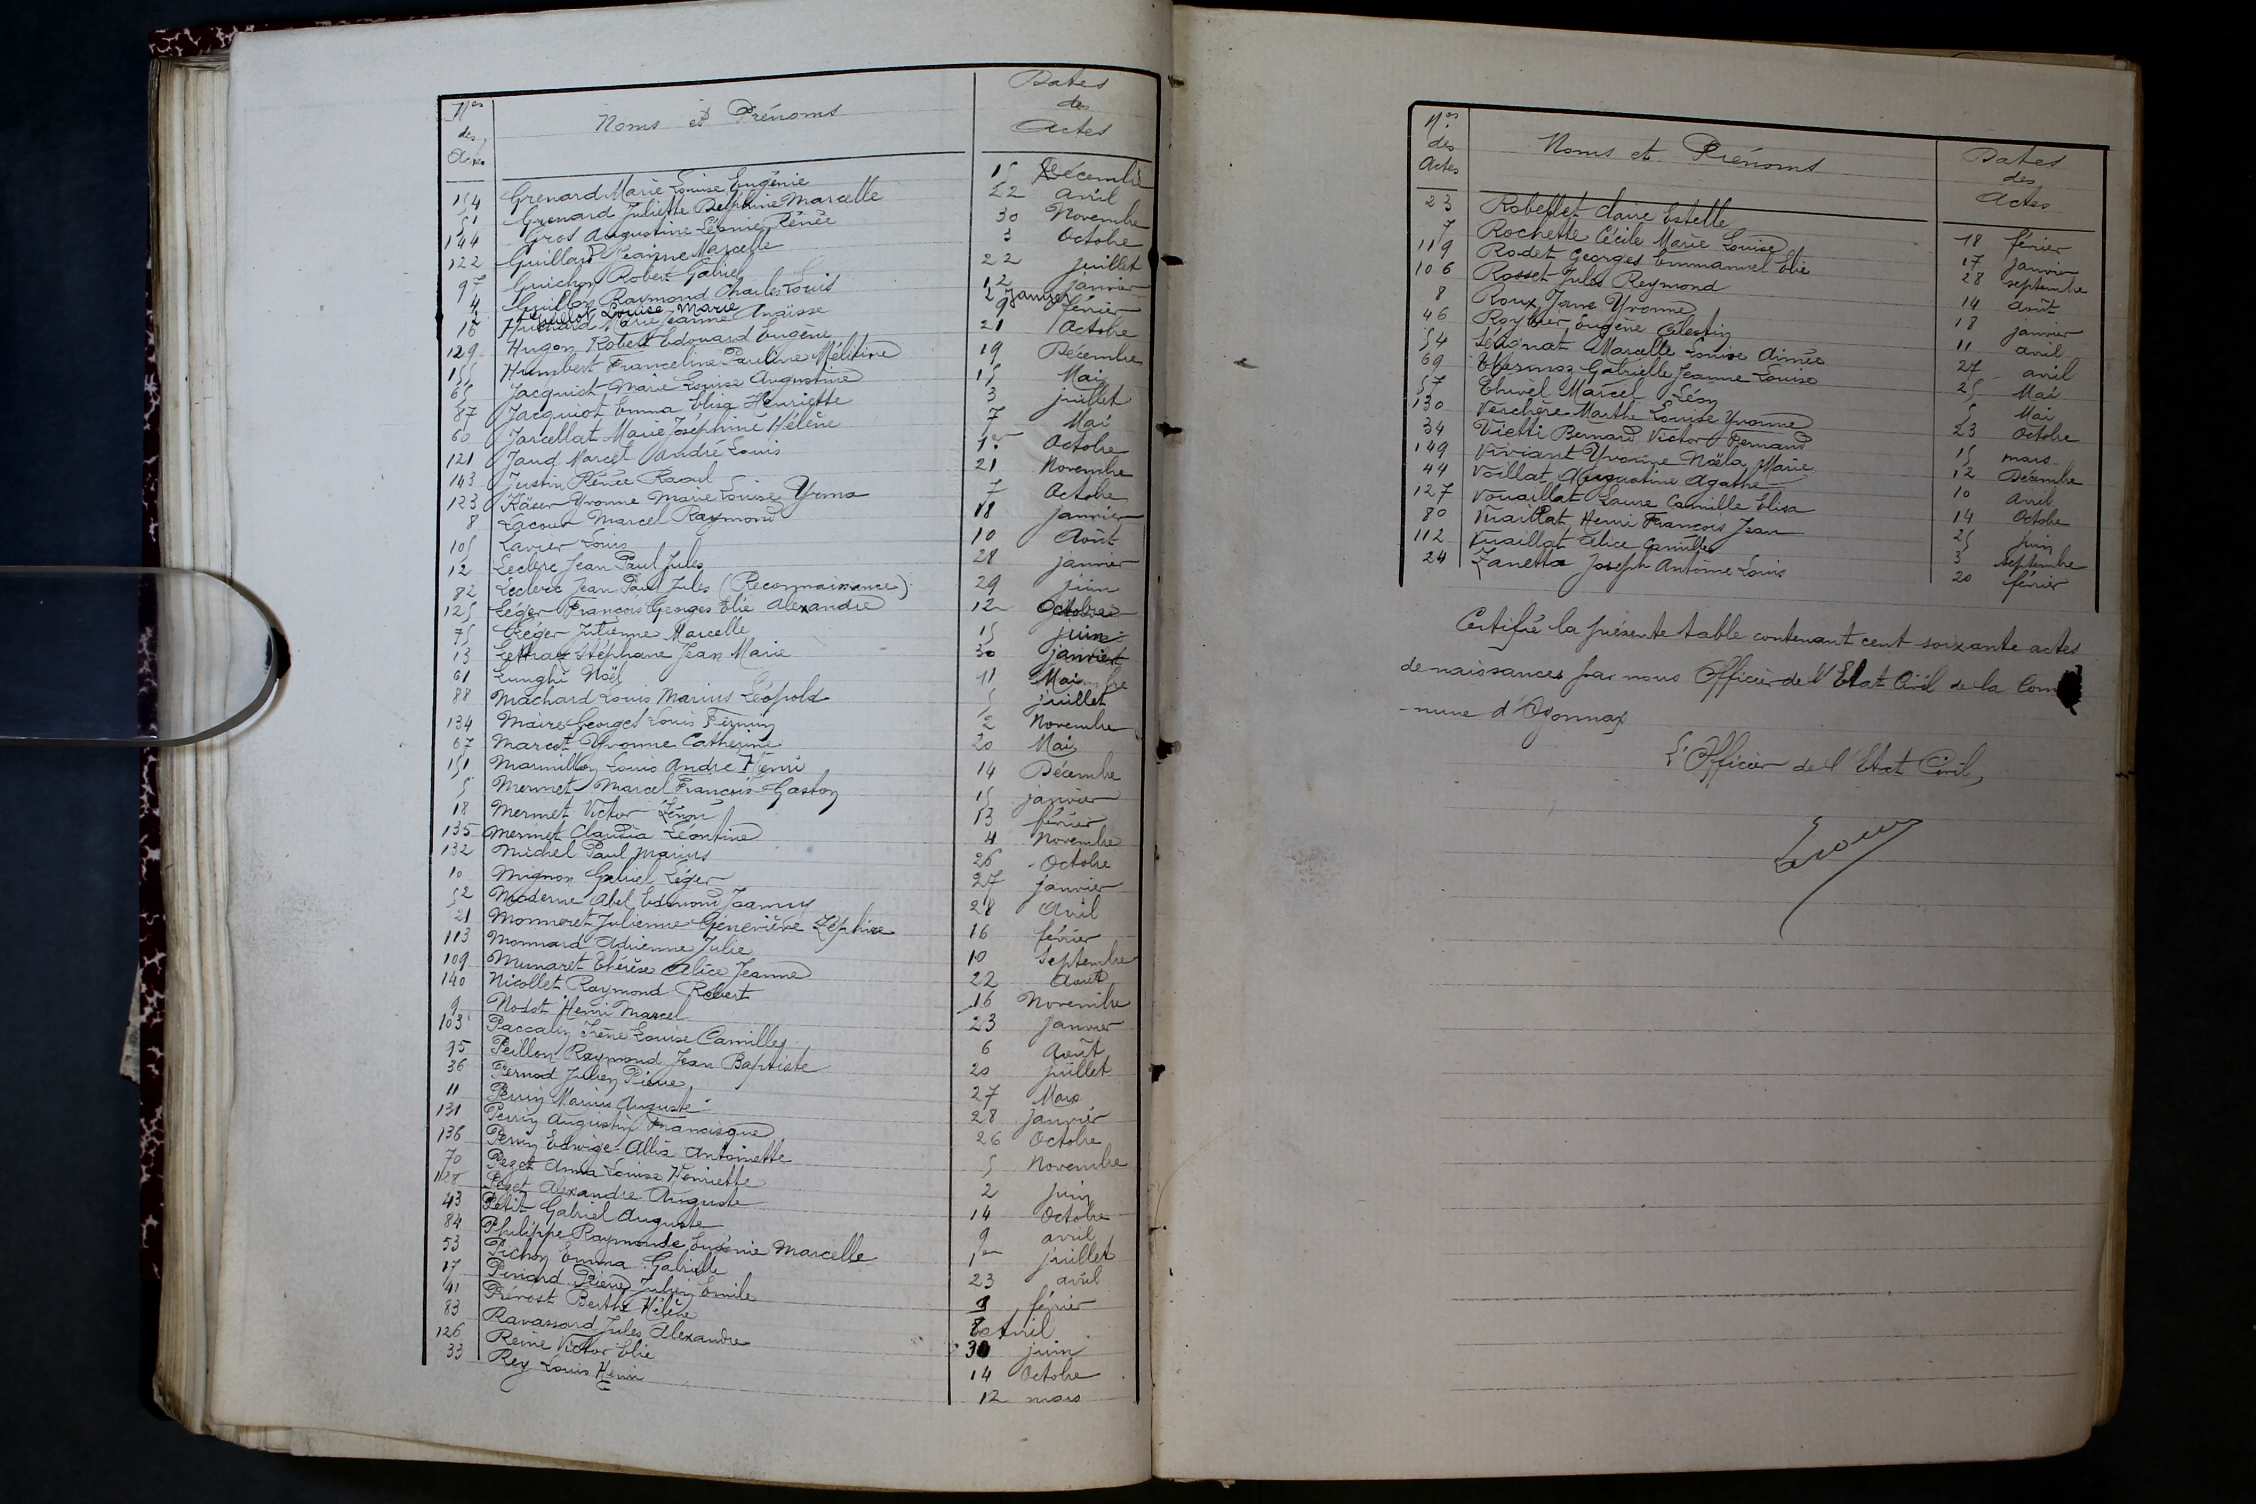 Nos des Actes
Noms et Prénoms
Dates des Actes
154 Grenard Marie Louise Eugénie 15 Décembre
51 Grenard Juliette Delphine Marcelle 22 avril
144 Gros Augustine Léonie Rénée 30 Novembre
122 Guillard Jeanne Marcelle 3 Octobre
97 Guichon Robert Gabriel 22 juillet
4 Guillon Raymond Charles Louis 12 janvier
Guillot Louise Marie 2 Janvier
16 Huchard Marie Jeanne Anaïsse 9 février
129 Hugon Robert Edouard Eugène 21 Octobre
155 Humbert Franceline Pauline Mélitine 19 Décembre
65 Jacquiot Marie Louise Augustine 15 Mai
87 Jacquiot Emma Elisa Henriette 3 juillet
60 Jarcellat Marie Joséphine Hélène 7 Mai
121 Jaud Marcel André Louis 1er Octobre
143 Justin Rénée Raoul 21 Novembre
123 Käser Yvonne Marie Louise Yrma 7 Octobre
8 Lacour Marcel Raymond 18 janvier
105 Lavier Louis 10 Août
12 Leclerc Jean Paul Jules 28 janvier
82 Leclerc Jean Paul Jules (Reconnaissance) 29 juin
125 Léger François Georges Elie Alexandre 12 Octobre
75 Léger Julienne Marcelle 15 juin
13 Stéphane Jean Marie 30 janvier
61 Lunghi Noël 11 Mai
88 Machard Louis Marius Léopold 5 juillet
134 Maire Georges Louis Firmin 2 Novembre
67 Marcot Yvonne Catherine 20 Mai
151 Marmillon Louis André Henri 14 Décembre
5 Mermet Marcel François Gaston 15 janvier
18 Mermet Victor Zénon 13 février
135 Mermet Claudia Léontine 4 Novembre
132 Michel Paul Marius 26 Octobre
10 Mignon Gabriel Léger 27 janvier
52 Moderne Abel Edmond Joanny 28 Avril
21 Monneret Julienne Géneviève Zéphire 16 février
113 Monnard Adrienne Julie 10 Septembre
109 Munaret Thérèse Alice Jeanne 22 Août
140 Nicollet Raymond Robert 16 Novembre
9 Nodot Henri Marcel 23 janvier
103 Paccalin Irène Louise Camille 6 Août
95 Peillon Raymond Jean Baptiste 20 juillet
36 Pernod Julien Pierre 27 Mars
11 Perrin Marius Auguste 28 janvier
131 Perrin Augustin Francisque 26 Octobre
136 Perrin Edwige Allia Antoinette 5 Novembre
70 Pezet Anna Louise Henriette 2 juin
128 Pezet Alexandre Auguste 14 Octobre
43 Petit Gabriel Auguste 9 avril
84 Philippe Raymonde Eugénie Marcelle 1er juillet
53 Pichon Emma Gabrielle 23 avril
17 Piniard Pierre Julien Emile 9 février
41 Prévost Berthe Hélène 8 Avril
83 Ravassard Jules Alexandre 30 juin
126 Reine Victor Elie 14 Octobre
33 Rey Louis Henri 12 mars
Nos des Actes
Noms et Prénoms
Dates des Actes
23 Robellet Claire Estelle 18 février
7 Rochette Cécile Marie Louise 17 janvier
119 Rodet Georges Emmanuel Elie 28 septembre
106 Rosset Jules Reymond 14 août
8 Roux Jane Yvonne 18 janvier
46 Roybier Eugène Célestin 11 avril
54 Seignat Marcelle Louise Aimée 27 avril
69 Thermoz Gabrielle Jeanne Louise 25 Mai
57 Thivel Marcel Léon 5 Mai
130 Verchère Marthe Louise Yvonne 23 Octobre
34 Vietti Bernard Victor Fernand 15 mars
149 Viviant Yvonne Noëla Marie 12 Décembre
44 Voillat Augustine Agathe 10 Avril
127 Vouaillat Laure Camille Elisa 14 Octobre
80 Vuaillat Henri François Jean 25 juin
112 Vuaillat Alice Camille 3 septembre
24 Zanetta Joseph Antoine Louis 20 février
Certifié la présente table contenant cent soixante actes
de naissances par nous Officier de l'Etat Civil de la Com
-mune d'Oyonnax
L'Officier de l'Etat Civil,